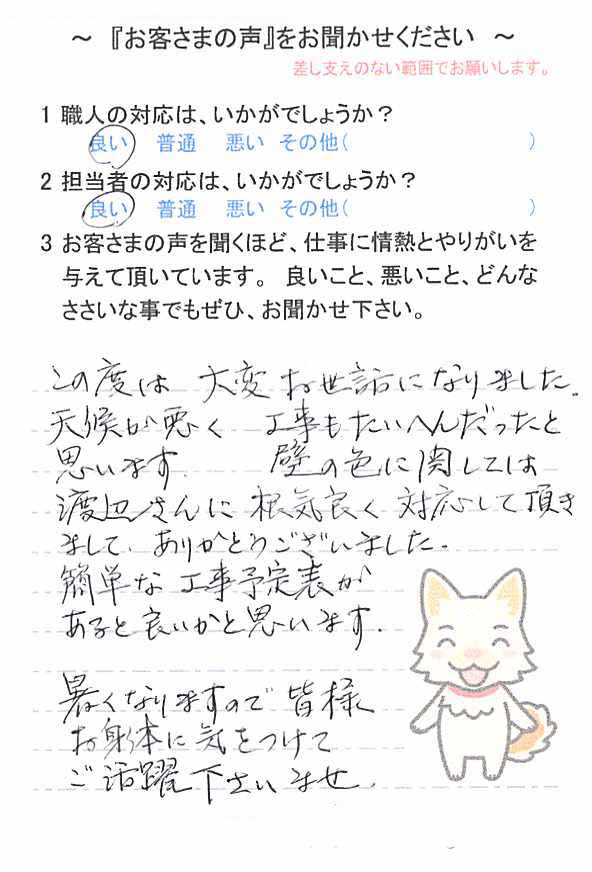 ～ 『お客さまの声』をお聞かせください ～
差し支えのない範囲でお願いします。
1 職人の対応は、いかがでしょうか？
良い 普通 悪い その他( )
2 担当者の対応は、いかがでしょうか？
良い 普通 悪い その他( )
3 お客さまの声を聞くほど、仕事に情熱とやりがいを
与えて頂いています。 良いこと、悪いこと、どんな
ささいな事でもぜひ、お聞かせ下さい。
この度は 大変 お世話になりました。
天候が悪く 工事もたいへんだったと
思います. 壁の色に関しては
渡辺さんに 根気良く 対応して頂き
まして. ありがとうございました.
簡単な 工事予定表が
あると良いかと思います.
暑くなりますので 皆様
お身体に気をつけて
ご活躍下さいませ.